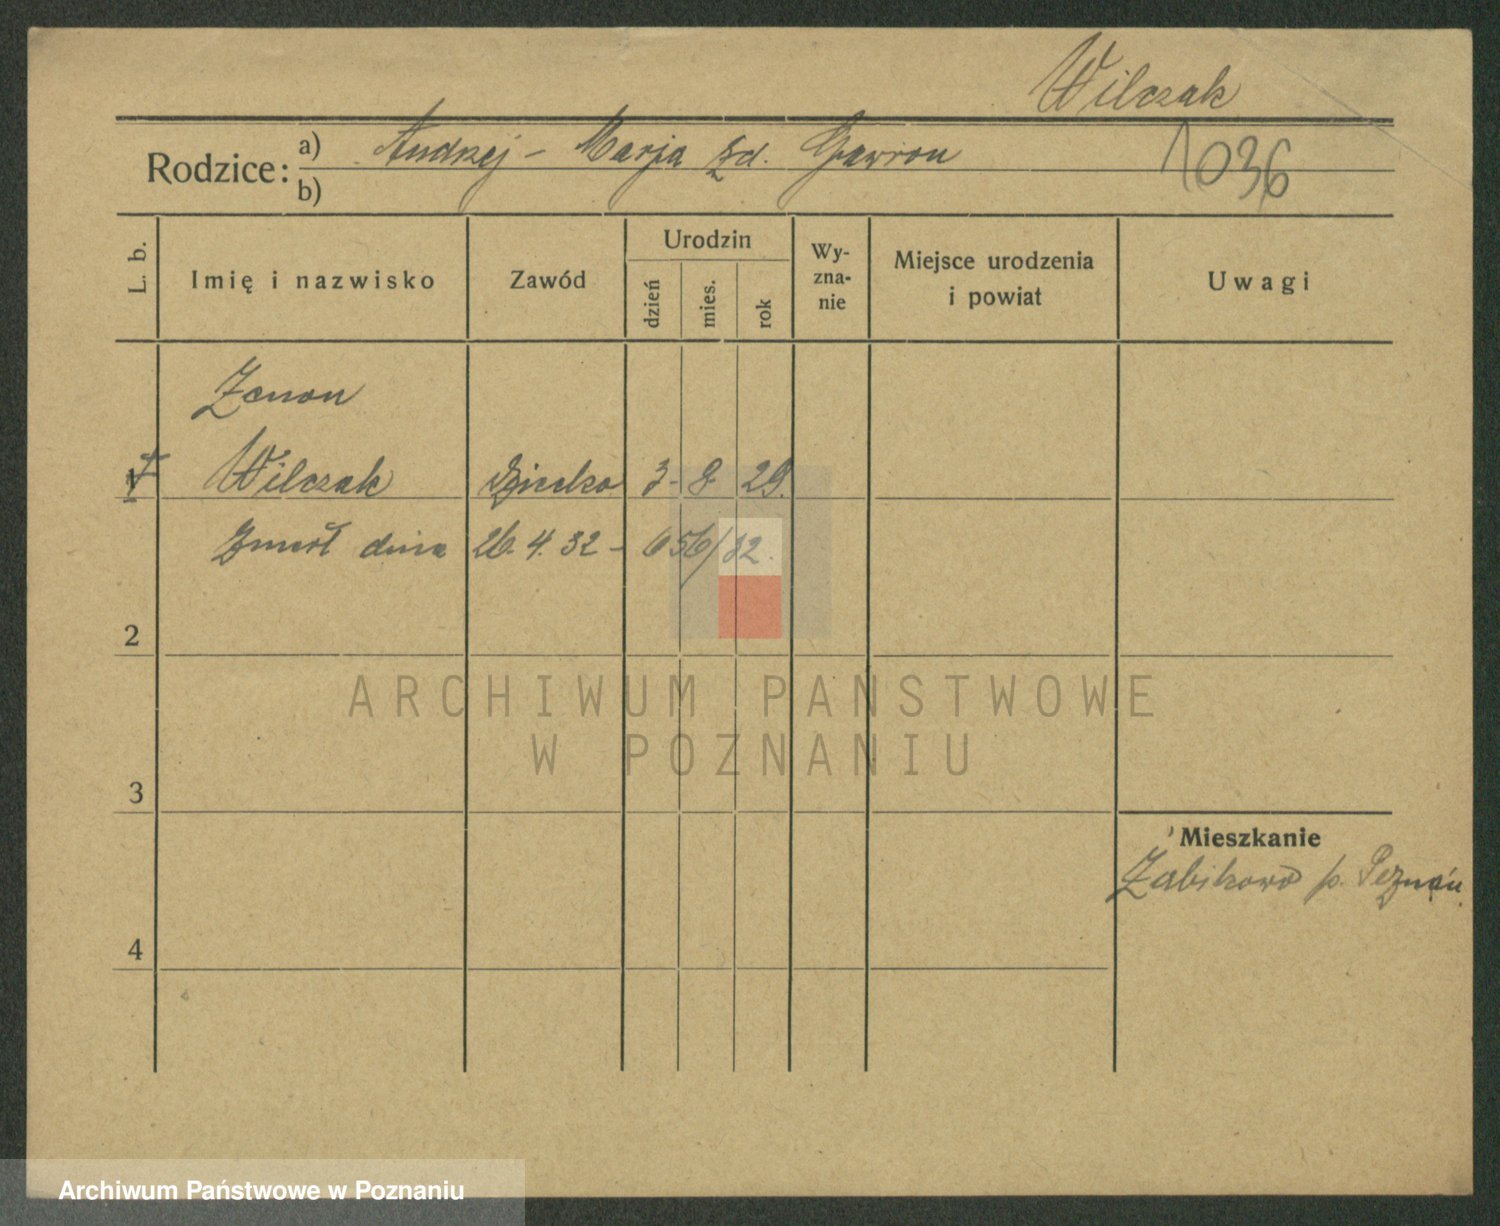 Wilczak
Rodzice: a) Andrzej – Marja zd. Gawron
b)
1036
L. b.
Imię i nazwisko
Zawód
Urodzin
dzień
mies.
rok
Wy-
zna-
nie
Miejsce urodzenia
i powiat
Uwagi
Zenon
1 Wilczak dziecko 3 - 8 29.
Zmarł dnia 26. 4. 32 – 656/32.
2
ARCHIWUM PAŃSTWOWE
W POZNANIU
3
Mieszkanie
Żabikowo p. Poznań.
4
Archiwum Państwowe w Poznaniu